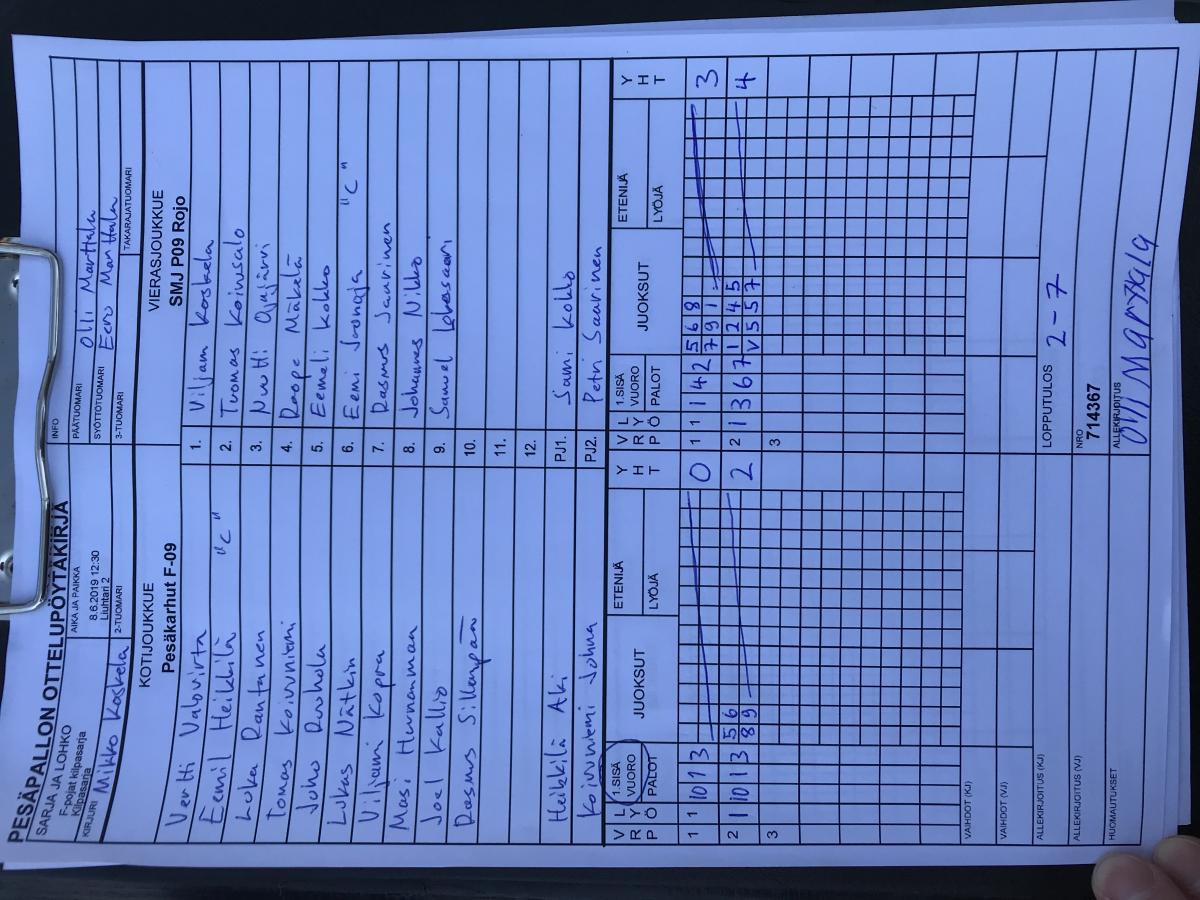 PESÄPALLON OTTELUPÖYTÄKIRJA
SARJA JA LOHKO
F-pojat kilpasarja
Kilpasarja
AIKA JA PAIKKA
8.6.2019 12:30
Liuhtari 2
INFO
KIRJURI
Mikko Koskela
2-TUOMARI
PÄÄTUOMARI
Olli Marttala
SYÖTTÖTUOMARI
Eero Marttala
3-TUOMARI
TAKARAJATUOMARI
KOTIJOUKKUE
Pesäkarhut F-09
VIERASJOUKKUE
SMJ P09 Rojo
Vertti Valovirta
1. Viljam Koskela
Eemil Heikkilä "C"
2. Tuomas Koivusalo
Luka Rantanen
3. Nuutti Ojajärvi
Tomas Koivuniemi
4. Roope Mäkelä
Juho Ruohola
5. Eemeli Kokko
Lukas Nätkin
6. Eemi "C"
Viljami Kopra
7. Rasmus Saarinen
Masi Hunnamman
8. Johannes Nikko
Joel Kallio
9. Samuel
Rasmus Sillanpää
10.
11.
12.
Heikkilä Aki
PJ1. Sami Kokko
Koivuniemi Johna
PJ2. Petri Saarinen
V R P
L Y Ö
1.SISÄ VUORO
PALOT
JUOKSUT
ETENIJÄ
LYÖJÄ
Y H T
V R P
L Y Ö
1.SISÄ VUORO
PALOT
JUOKSUT
ETENIJÄ
LYÖJÄ
Y H T
1 1 10 1 3 0
1 1 1 4 2 5 6 8 3
7 9 1
2 1 10 1 3 5 6 2
8 9
2 1 3 6 7 1 2 4 5 4
V 5 5 7
3
3
VAIHDOT (KJ)
VAIHDOT (VJ)
ALLEKIRJOITUS (KJ)
LOPPUTULOS
2-7
ALLEKIRJOITUS (VJ)
NRO
714367
HUOMAUTUKSET
ALLEKIRJOITUS
Olli Marttala